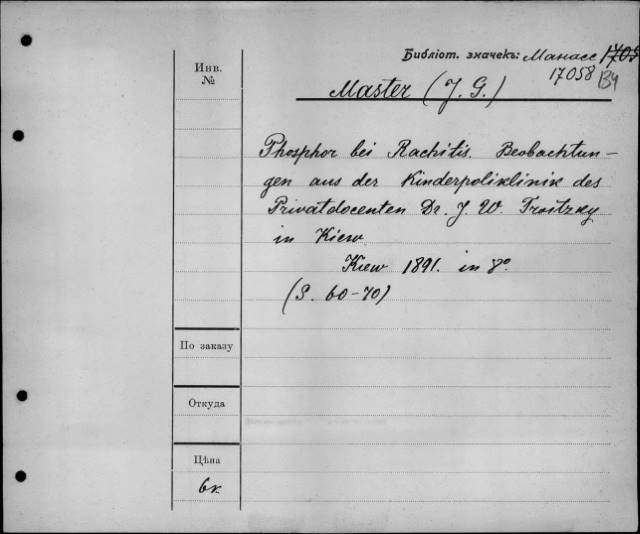 Библіот. значекъ: Манасс 1705
17058 134
Инв.
№
Master (J. G.)
Phosphor bei Rachitis. Beobachtun-
gen aus der Kinderpoliklinik des
Privatdocenten Dr. J. W. Troitzky
in Kiew.
Kiew 1891. in 8°.
(S. 60-70)
По заказу
Откуда
Цѣна
6к.